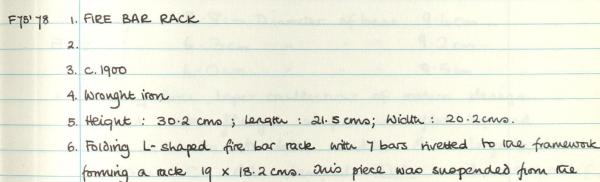 F75'78 1. FIRE BAR RACK
2.
3. c.1900
4. Wrought iron
5. Height : 30.2 cms ; Length : 21.5 cms; Width : 20.2cms.
6. Folding L-shaped fire bar rack with 7 bars rivetted to the framework
forming a rack 19 x 18.2 cms. This piece was suspended from the